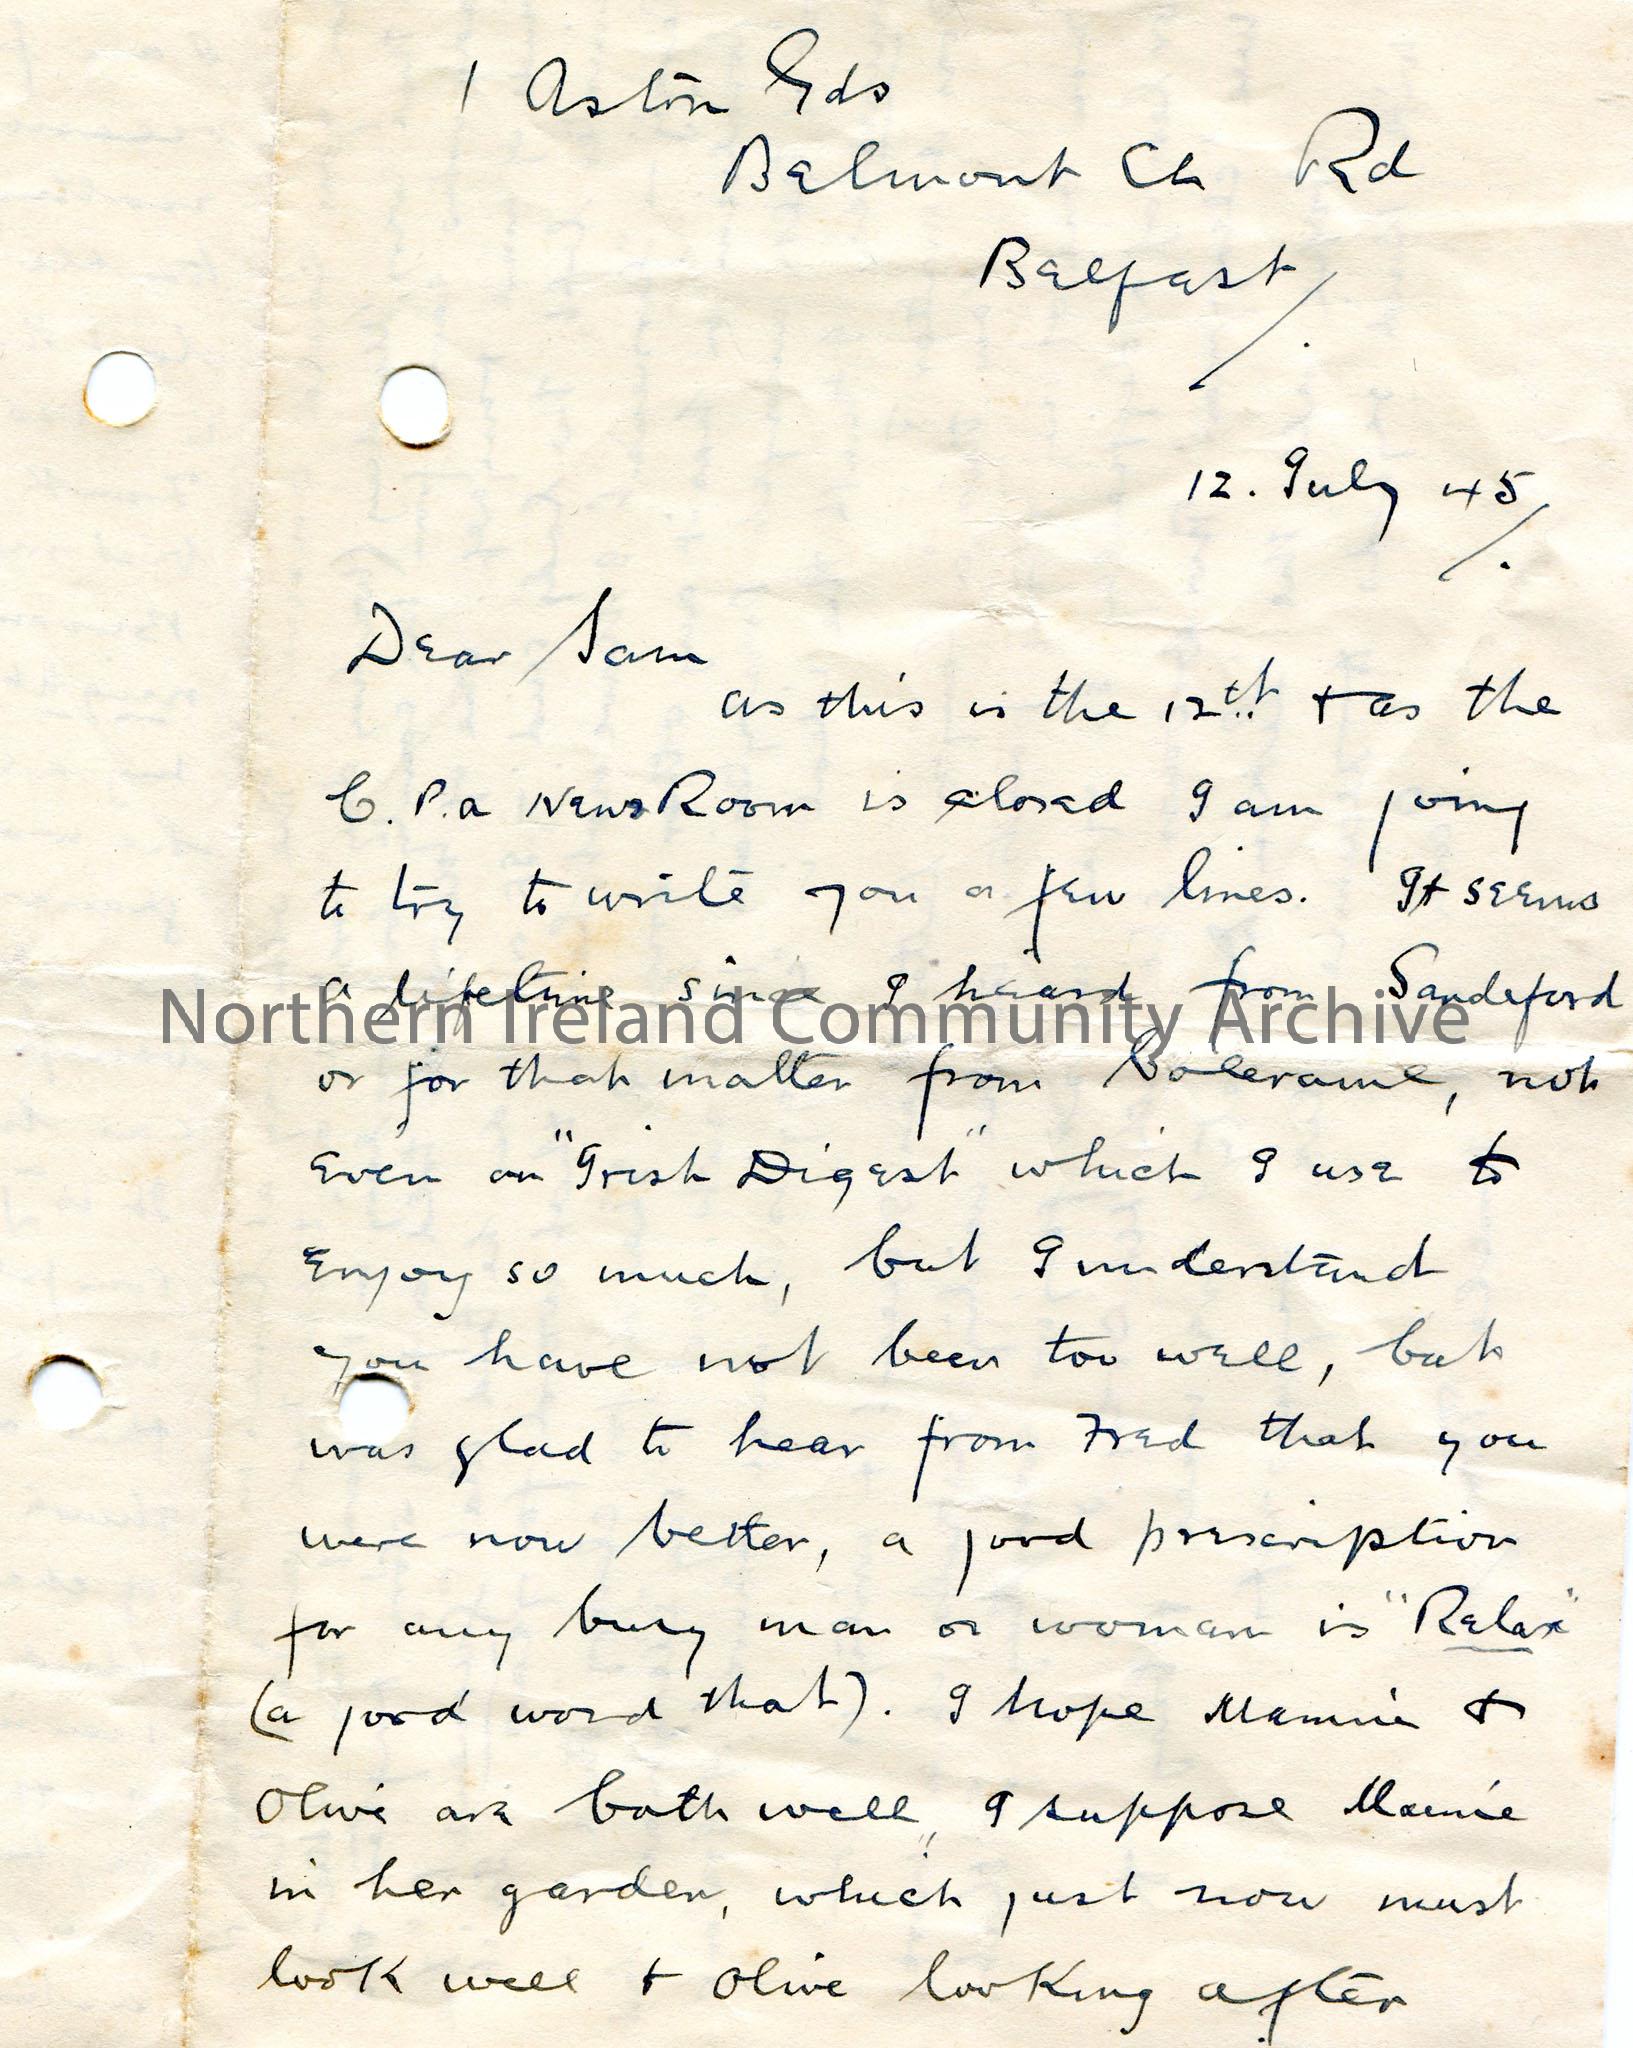 1 Aston Gds
Belmont Ch Rd
Belfast
12. July 45
Dear Sam
as this is the 12th & as the
C.P.a News Room is closed I am going
to try to write you a few lines. It seems
a lifetime since I heard from Sandeford
or for that matter from Colerame, not
even an "Irish Digest" which I use to
enjoy so much, but I understand
you have not been too well, but
was glad to hear from Fred that you
were now better, a good prescription
for any busy man or woman is "Relax"
(a good word that). I hope Mamie &
Olive are both well, I suppose Mamie
in her garden, which just now must
look well & Olive looking after
Northern Ireland Community Archive